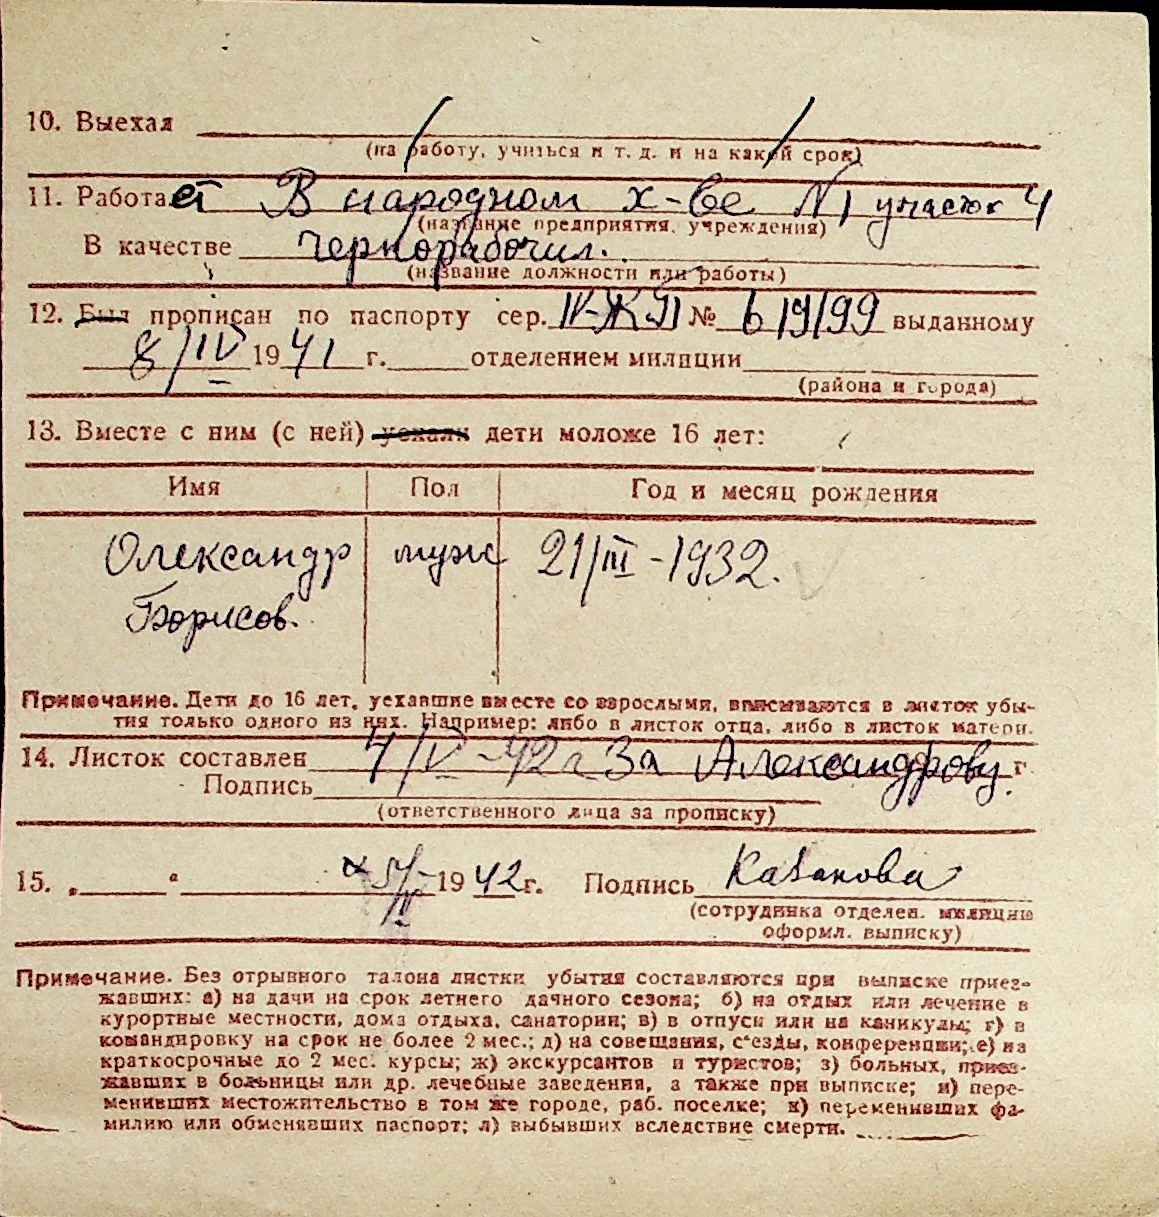 10. Выехал
(на работу, учиться и т. д. и на какой срок)
11. Работает В народном х-ве №1 участок 4
(название предприятия, учреждения)
В качестве Чернорабочил.
(название должности или работы)
12. Был прописан по паспорту сер. IV-ЖЯ № 619199 выданному
8/IV 1941 г. отделением милиции
(района и города)
13. Вместе с ним (с ней) уехали дети моложе 16 лет:
Имя Пол Год и месяц рождения
Олександр муж 21/III-1932.
Борисов.
Примечание. Дети до 16 лет, уехавшие вместе со взрослыми, вписываются в листок убы-
тия только одного из них. Например: либо в листок отца, либо в листок матери.
14. Листок составлен 4/IV-42 г За Александрову г.
Подпись
(ответственного лица за прописку)
15. „ “ 1942г. Подпись Казанова
(сотрудника отделен. милиции
оформл. выписку)
Примечание. Без отрывного талона листки убытия составляются при выписке приез-
жавших: а) на дачи на срок летнего дачного сезона; б) на отдых или лечение в
курортные местности, дома отдыха, санатории; в) в отпуск или на каникулы; г) в
командировку на срок не более 2 мес.; д) на совещания, с'езды, конференции; е) на
краткосрочные до 2 мес. курсы; ж) экскурсантов и туристов; з) больных, приез-
жавших в больницы или др. лечебные заведения, а также при выписке; и) пере-
менивших местожительство в том же городе, раб. поселке; к) переменивших фа-
милию или обменявших паспорт; л) выбывших вследствие смерти.